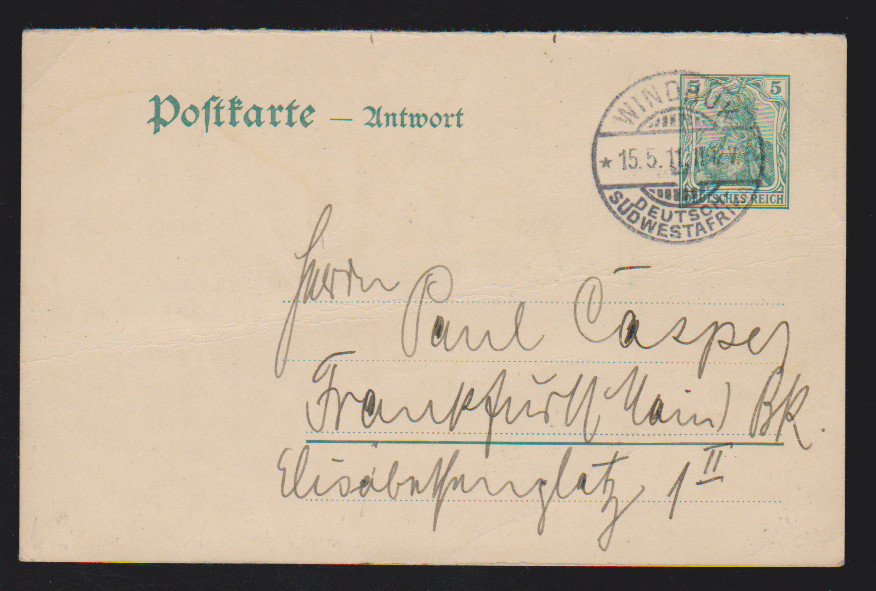 Postkarte — Antwort
5 5
DEUTSCHES REICH
WINDHUK
* 15.5.11
DEUTSCH-
SÜDWESTAFRIKA
Herrn
Paul Casper
Frankfurt (Main) BK.
Elisabethenplatz 1 II